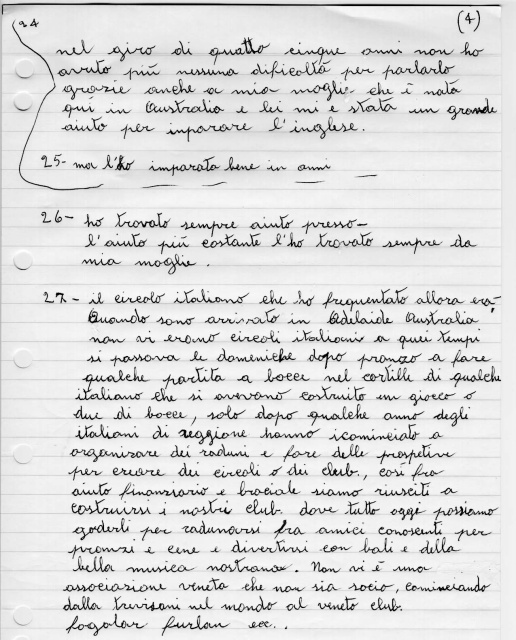 24
(4)
nel giro di quatto cinque anni non ho
avuto più nessuna dificoltà per parlarlo
grazie anche a mia moglie che è nata
qui in Australia e lei mi è stata un grande
aiuto per inparare l'inglese.
25- ma l'ho imparata bene in anni
26- ho trovato sempre aiuto presso-
l'aiuto più costante l'ho trovato sempre da
mia moglie.
27- il circolo italiano che ho frequentato allora era
Quando sono arrivato in Adelaide Australia
non vi erano circoli italiani a quei tempi
si passava le domeniche dopo pranzo a fare
qualche partita a bocce nel cortille di qualche
italiano che si avevano costruito un gioco o
due di bocce, solo dopo qualche anno degli
italiani di reggione hanno icominciato a
organizare dei raduni e fare delle prospetive
per creare dei circoli o dei club., così fra
aiuto finanziario e braciale siamo riusciti a
costruirsi i nostri club. dove tutto oggi possiamo
goderli per radunarsi fra amici conoscenti per
pranzi e cene e divertirsi con bali e della
bella musica nostrana. Non vi è una
associazione veneta che non sia socio, cominciando
dalla trevisani nel mondo al veneto club.
fogolar furlan ecc..